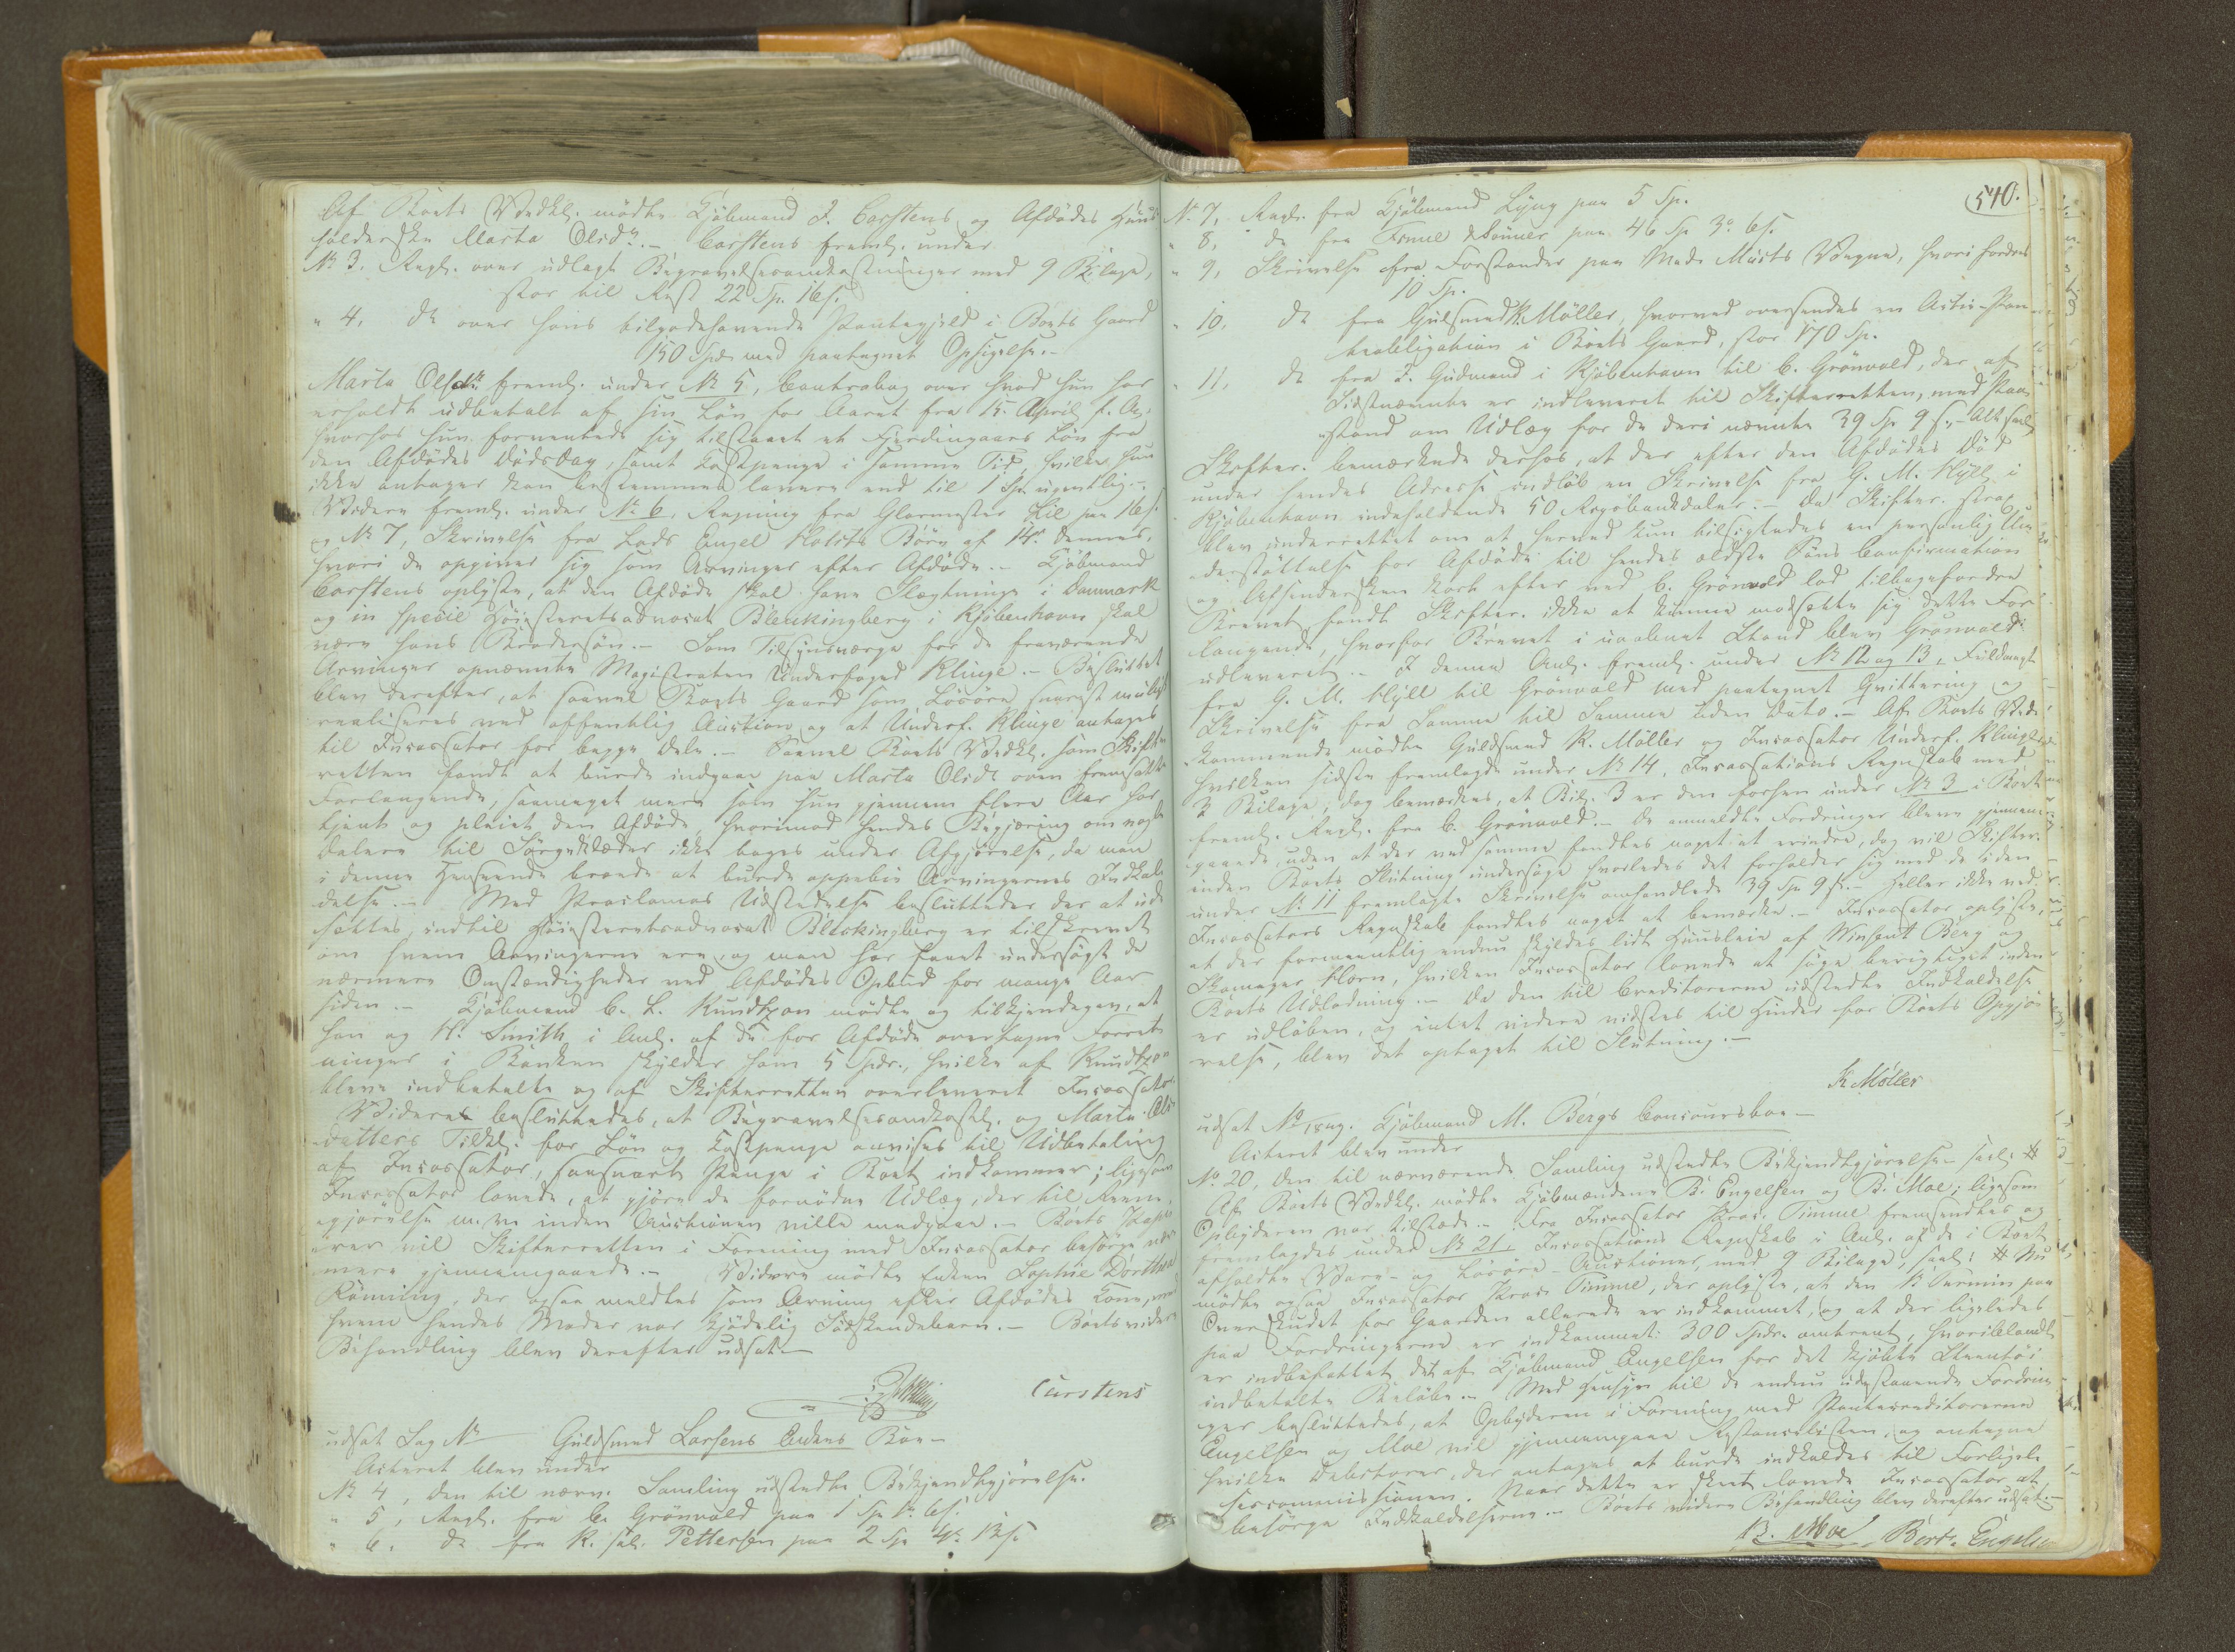 Af Boets Vedkl. mødte Kjøbmand J. Carstens og Afdødes Huus
holderske Marta Olsdr. – Carstens freml. under
No 3. Regl. over udlagt Begravelsesomkostninger med 9 Bilage,
stor til Rest 22 Sp. 16 s.
" 4. do over hans tilgodehavende Pantegjeld i Boets Gaard
150 Spd. med paategnet Opsigelse. –
Marta Olsdr. freml. under No 5, Contrabog over hvad hun har
erholdt udbetalt af sin Løn for Aaret fra 15 April f. A.,
hvorhos hun formeentede sig tilstaaet et Fjerdingaars Løn fra
den Afdødes Dødsdag, samt Kostpenge i samme Tid, hvilke hun
ikke antager kan bestemmes lavere end til 1 Sp. ugentlig. –
Videre freml. under No 6, Regning fra Glarmester Lie paa 16 s.
og No 7, Skrivelse fra Lods Engel Holsts Børn af 14 dennes,
hvori de opgiver sig som Arvinger efter Afdøde. – Kjøbmand
Carstens oplyste, at den Afdøde skal have Slægtninge i Danmark
og in specie Høiesteretsadvocat Bleckingberg i Kjøbenhavn skal
være hans Brodersøn. – Som Tilsynsværge for de fraværende
Arvinger opnævnte Magistraten Underfoged Klinge. – Besluttet
blev derefter, at saavel Boets Gaard som Løsøre snarest muligt
realiseres ved offentlig Auction og at Underf. Klinge antages
til Incassator for begge Dele. – Saavel Boets Vedkl. som Skifte
retten fandt at burde indgaae paa Marta Olsdr. oven fremsatte
Forlangende, saameget mere som hun gjennem flere Aar har
tjent og pleiet den Afdøde, hvorimod hendes Begjæring om nogle
Dalere til Sørgeklæder ikke toges under Afgjørelse, da man
i denne Henseende troede at burde oppebie Arvingernes Indkal
delse. – Med Proclamas Udstedelse besluttedes der at ud
sættes, indtil Høiesteretsadvocat Bleckingberg er tilskrevet
om hvem Arvingerne ere, og man har faaet undersøgt de
nærmere Omstændigheder ved Afdødes Opbud for mange Aar
siden. – Kjøbmand C. L. Knudtzon mødte og tilkjendegav, at
han og H. Smith i Anl. af de for Afdøde overtagne Forret
ninger i Banken skylder ham 5 Spdr., hvilke af Knudtzon
bleve indbetalte og af Skifteretten overleveret Incassator.
Videre besluttedes, at Begravelsesomkostn. og Marta Ols
datters Tilkl. for Løn og Kostpenge anvises til Udbetaling
af Incassator, saasnart Penge i Boet indkommer; ligesom
Incassator lovede, at gjøre de fornødne Udlæg, der til Reen
gjørelse m. m. inden Auctionen ville medgaae. – Boets Papi
rer vil Skifteretten i Forening med Incassator besørge nær
mere gjennemgaaede. – Videre mødte Enken Sophie Dorthea
Røming, der ogsaa meldtes som Arving efter Afdødes Kone, med
hvem hendes Moder var kjødelig Sødskendebarn. – Boets videre
Behandling blev derefter udsat. –
Carstens
udsat Sag No Guldsmed Larsens Enkes Boe –
Acteret blev under
No 4, den til nærv. Samling udstedte Bekjendtgjørelse.
" 5, Regl. fra C. Grønvold paa 1 Sp. 1 o. 6 s.
" 6, do fra K. sal. Pettersen paa 2 Sp. 4 o. 12 s.
540.
No 7, Regl. fra Kjøbmand Lyng paa 5 Sp.
" 8, do fra Finne & Sønner paa 46 Sp. 3 o. 6 s.
" 9, Skrivelse fra Forstander paa Mad. Müsts Vegne, hvori fordres
10 Sp.
" 10, do fra Gulsmed K. Møller, hvorved oversendes en Activ-Pan
teobligation i Boets Gaard, stor 170 Sp.
" 11, do fra J. Gudmand i Kjøbenhavn til C. Grønvold, der af
Sidstnævnte er indleveret til Skifteretten, med Paa
stand om Udlæg for de deri nævnte 39 Sp 9 s. – Alt saal.
Skifter. bemærkede derhos, at der efter den Afdødes Død
under hendes Adresse indløb en Skrivelse fra G. M. Hyll i
Kjøbenhavn indeholdende 50 Rigsbankdaler. – Da Skifter. strax
blev underrettet om at herved kun tilsigtedes en personlig Un
derstøttelse for Afdøde til hendes ældste Søns Confirmation
og Afsendersken kort efter ved C. Grønvold lod tilbagefordre
Brevet, fandt Skifter. ikke at kunne modsætte sig dette For
langende, hvorfor Brevet i uaabnet Stand blev Grønvold
udleveret. – I denne Anl. freml. under No 12 og 13, Fuldmagt
fra G. M. Hyll til Grønvold med paategnet Qvittering og
Skrivelse fra Samme til Samme uden Dato. – Af Boets Ved
kommende mødte Guldsmed K. Møller og Incassator Underf. Klinge
hvilken sidste fremlagde under No 14, Incassations Regnskab med
3 Bilage, dog bemærkes, at Bil. 3 er den forhen under No 3 i Boet
freml. Regl. fra C. Grønvold. – De anmeldte Fordringer bleve gjennem
gaaede, uden at der ved samme fandtes noget at erindre, dog vil Skifter.
inden Boets Slutning undersøge hvorledes det forholder sig med de i den
under No 11 fremlagte Skrivelse omhandlede 39 Sp. 9 s. – Heller ikke ved
Incassators Regnskab fandtes noget at bemærke. – Incassator oplyste,
at der formeentlig endnu skyldes lidt Huusleie af Winsent Berg og
Skomager Horn, hvilken Incassator lovede at søge berigtiget inden
Boets Udlodning. – Da den til Creditorerne udstedte Indkaldelse
er udløben, og intet videre vidstes til Hinder for Boets Opgjø
relse, blev det optaget til Slutning. –
K. Møller
udsat No Kjøbmand M. Bergs Concoursboe –
Acteret blev under
No 20, den til nærværende Samling udstedte Bekjendtgjørelse saal: #
Af Boets Vedkl. mødte Kjøbmændene B. Engelsen og B. Moe; ligesom
Opbyderen var tilstæde. – Fra Incassator Proc. Timme fremsendtes og
fremlagdes under No 21, Incassations Regnskab i Anl. af de i Boet
afholdte Vare- og Løsøre-Auctioner, med 9 Bilage, saal: # Nu
mødte ogsaa Incassator Proc. Timme, der oplyste, at den 1ste Termin paa
Overskudet for Gaarden allerede er indkommet, og at der ligeledes
paa Fordringerne er indkommet 300 Spdr. omtrent, hvoriblandt
er indbefattet det af Kjøbmand Engelsen for det kjøbte Steentøi
indbetalte Beløb. – Med Hensyn til de endnu udestaaende Fordrin
ger besluttedes, at Opbyderen i Forening med Pantecreditorerne
Engelsen og Moe vil gjennemgaae Restancelisten, og antegne
hvilke Debitorer, der antages at burde indkaldes til Forligels
sescommissionen. Naar dette er skeet lovede Incassator at
besørge Indkaldelserne. – Boets videre Behandling blev derefter udsat. –
B. Moe Bert. Engelsen